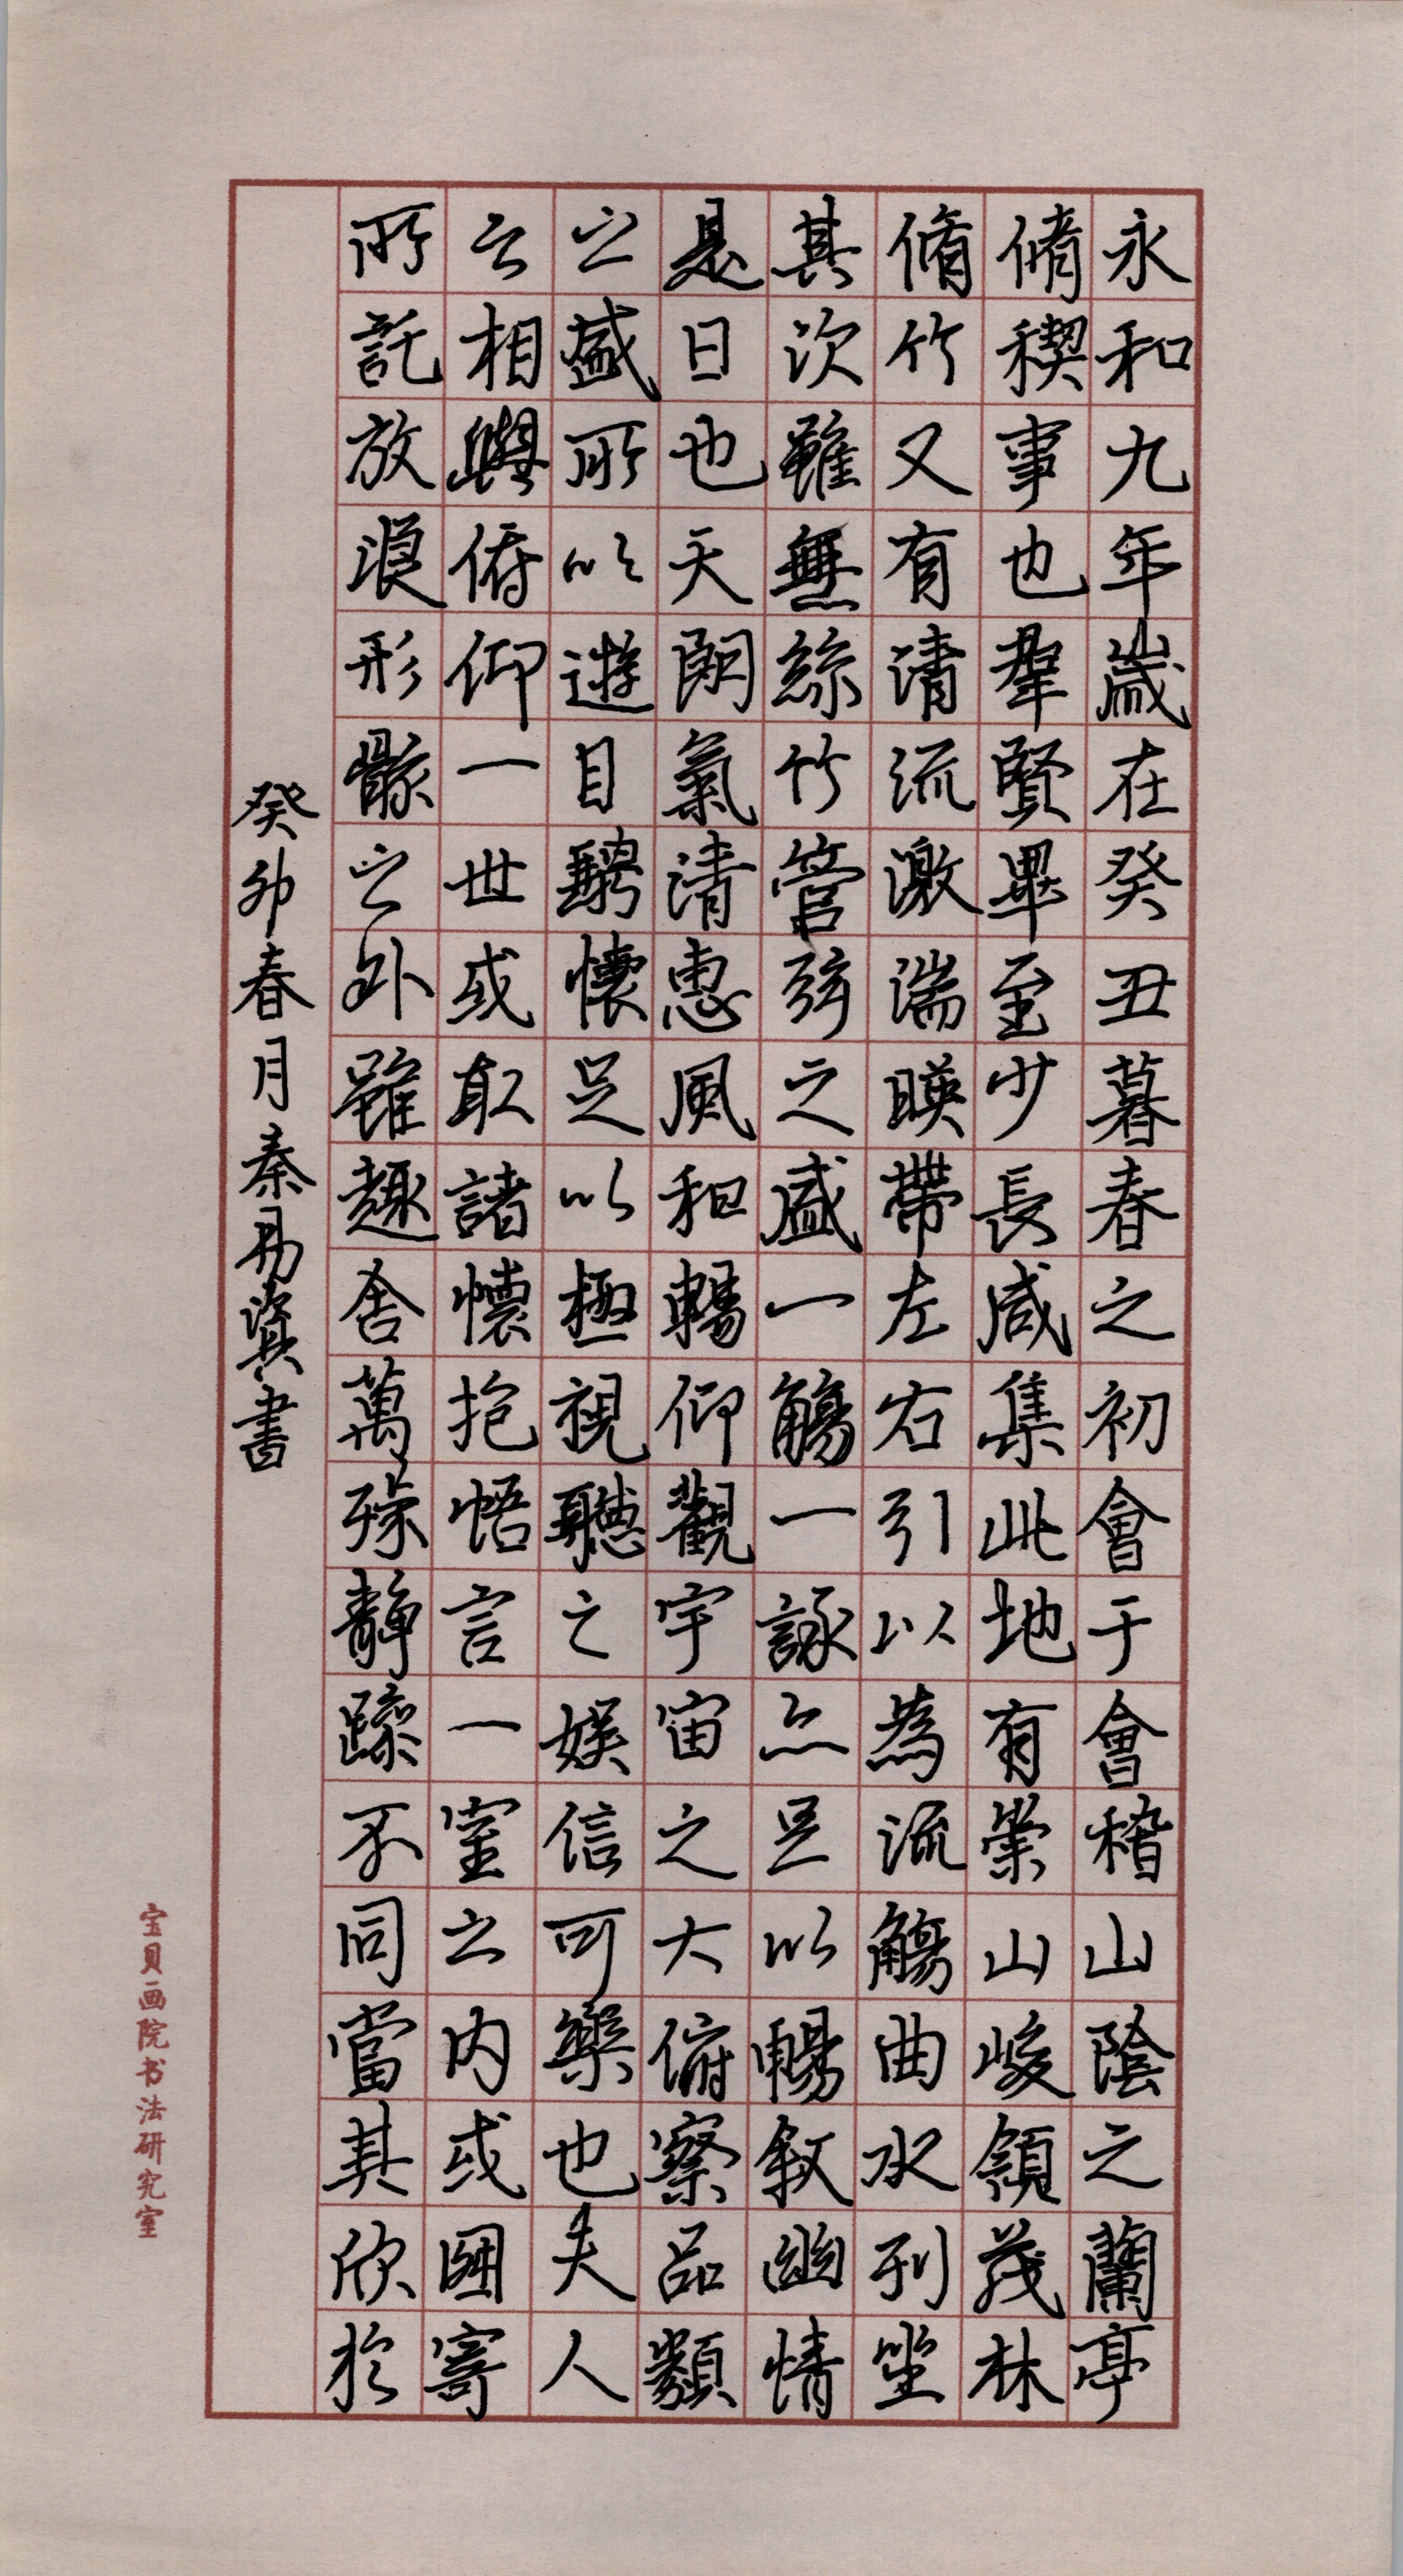 永和九年歲在癸丑暮春之初會于會稽山陰之蘭亭
脩稧事也羣賢畢至少長咸集此地有崇山峻領茂林
脩竹又有清流激湍暎帶左右引以為流觴曲水列坐
其次雖無絲竹管弦之盛一觴一詠亦足以暢叙幽情
是日也天朗氣清惠風和暢仰觀宇宙之大俯察品類
之盛所以遊目騁懷足以極視聽之娛信可樂也夫人
之相與俯仰一世或取諸懷抱悟言一室之內或因寄
所託放浪形骸之外雖趣舍萬殊靜躁不同當其欣於
癸卯春月秦易書
宝贝画院书法研究室